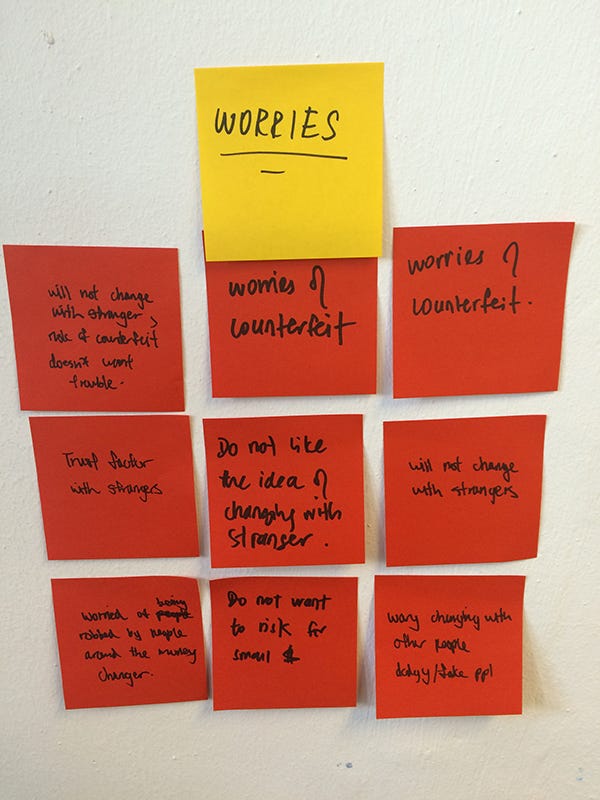 WORRIES
will not change
with stranger >
risk of counterfeit
doesn't want
trouble.
worries of
counterfeit
worries of
counterfeit.
Trust factor
with strangers
Do not like
the idea of
changing with
stranger.
will not change
with strangers
being
worried of people
robbed by people
around the money
changer.
Do not want
to risk for
small $
wary changing with
other people
dodgy/fake ppl